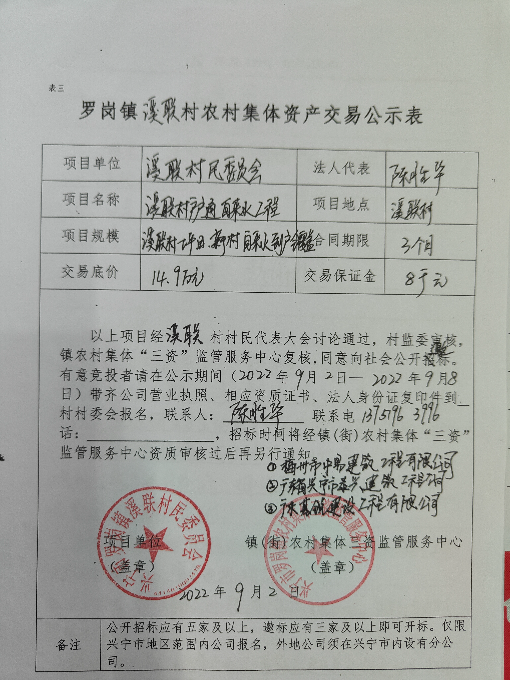 表三
罗岗镇溪联村农村集体资产交易公示表
项目单位 溪联村民委员会 法人代表 陈胜华
项目名称 溪联村户户通自来水工程 项目地点 溪联村
项目规模 溪联村 村自来水到户 合同期限 3个月
交易底价 14.9万元 交易保证金 8千元
以上项目经溪联村村民代表大会讨论通过，村监委审核。
镇农村集体“三资”监管服务中心复核，同意向社会公开招标。
有意竞投者请在公示期间（2022年9月2日—2022年9月8
日）带齐公司营业执照、相应资质证书、法人身份证复印件到
村村委会报名，联系人：陈胜华 联系电
话： ，招标时柯将经镇(街)农村集体“三资”
监管服务中心资质审核过后再另行通知
①梅州市中易建筑工程有限公司
②广东省兴宁市泰兴建筑工程公司
③广东 建设工程有限公司
项目单位 镇(街)农村集体三资监管服务中心
（盖章） （盖章）
兴宁市罗岗镇溪联村民委员会
2022年9月2日
备注
公开招标应有五家及以上，邀标应有三家及以上即可开标。仅限
兴宁市地区范围内公司报名，外地公司须在兴宁市内设有分公
司。